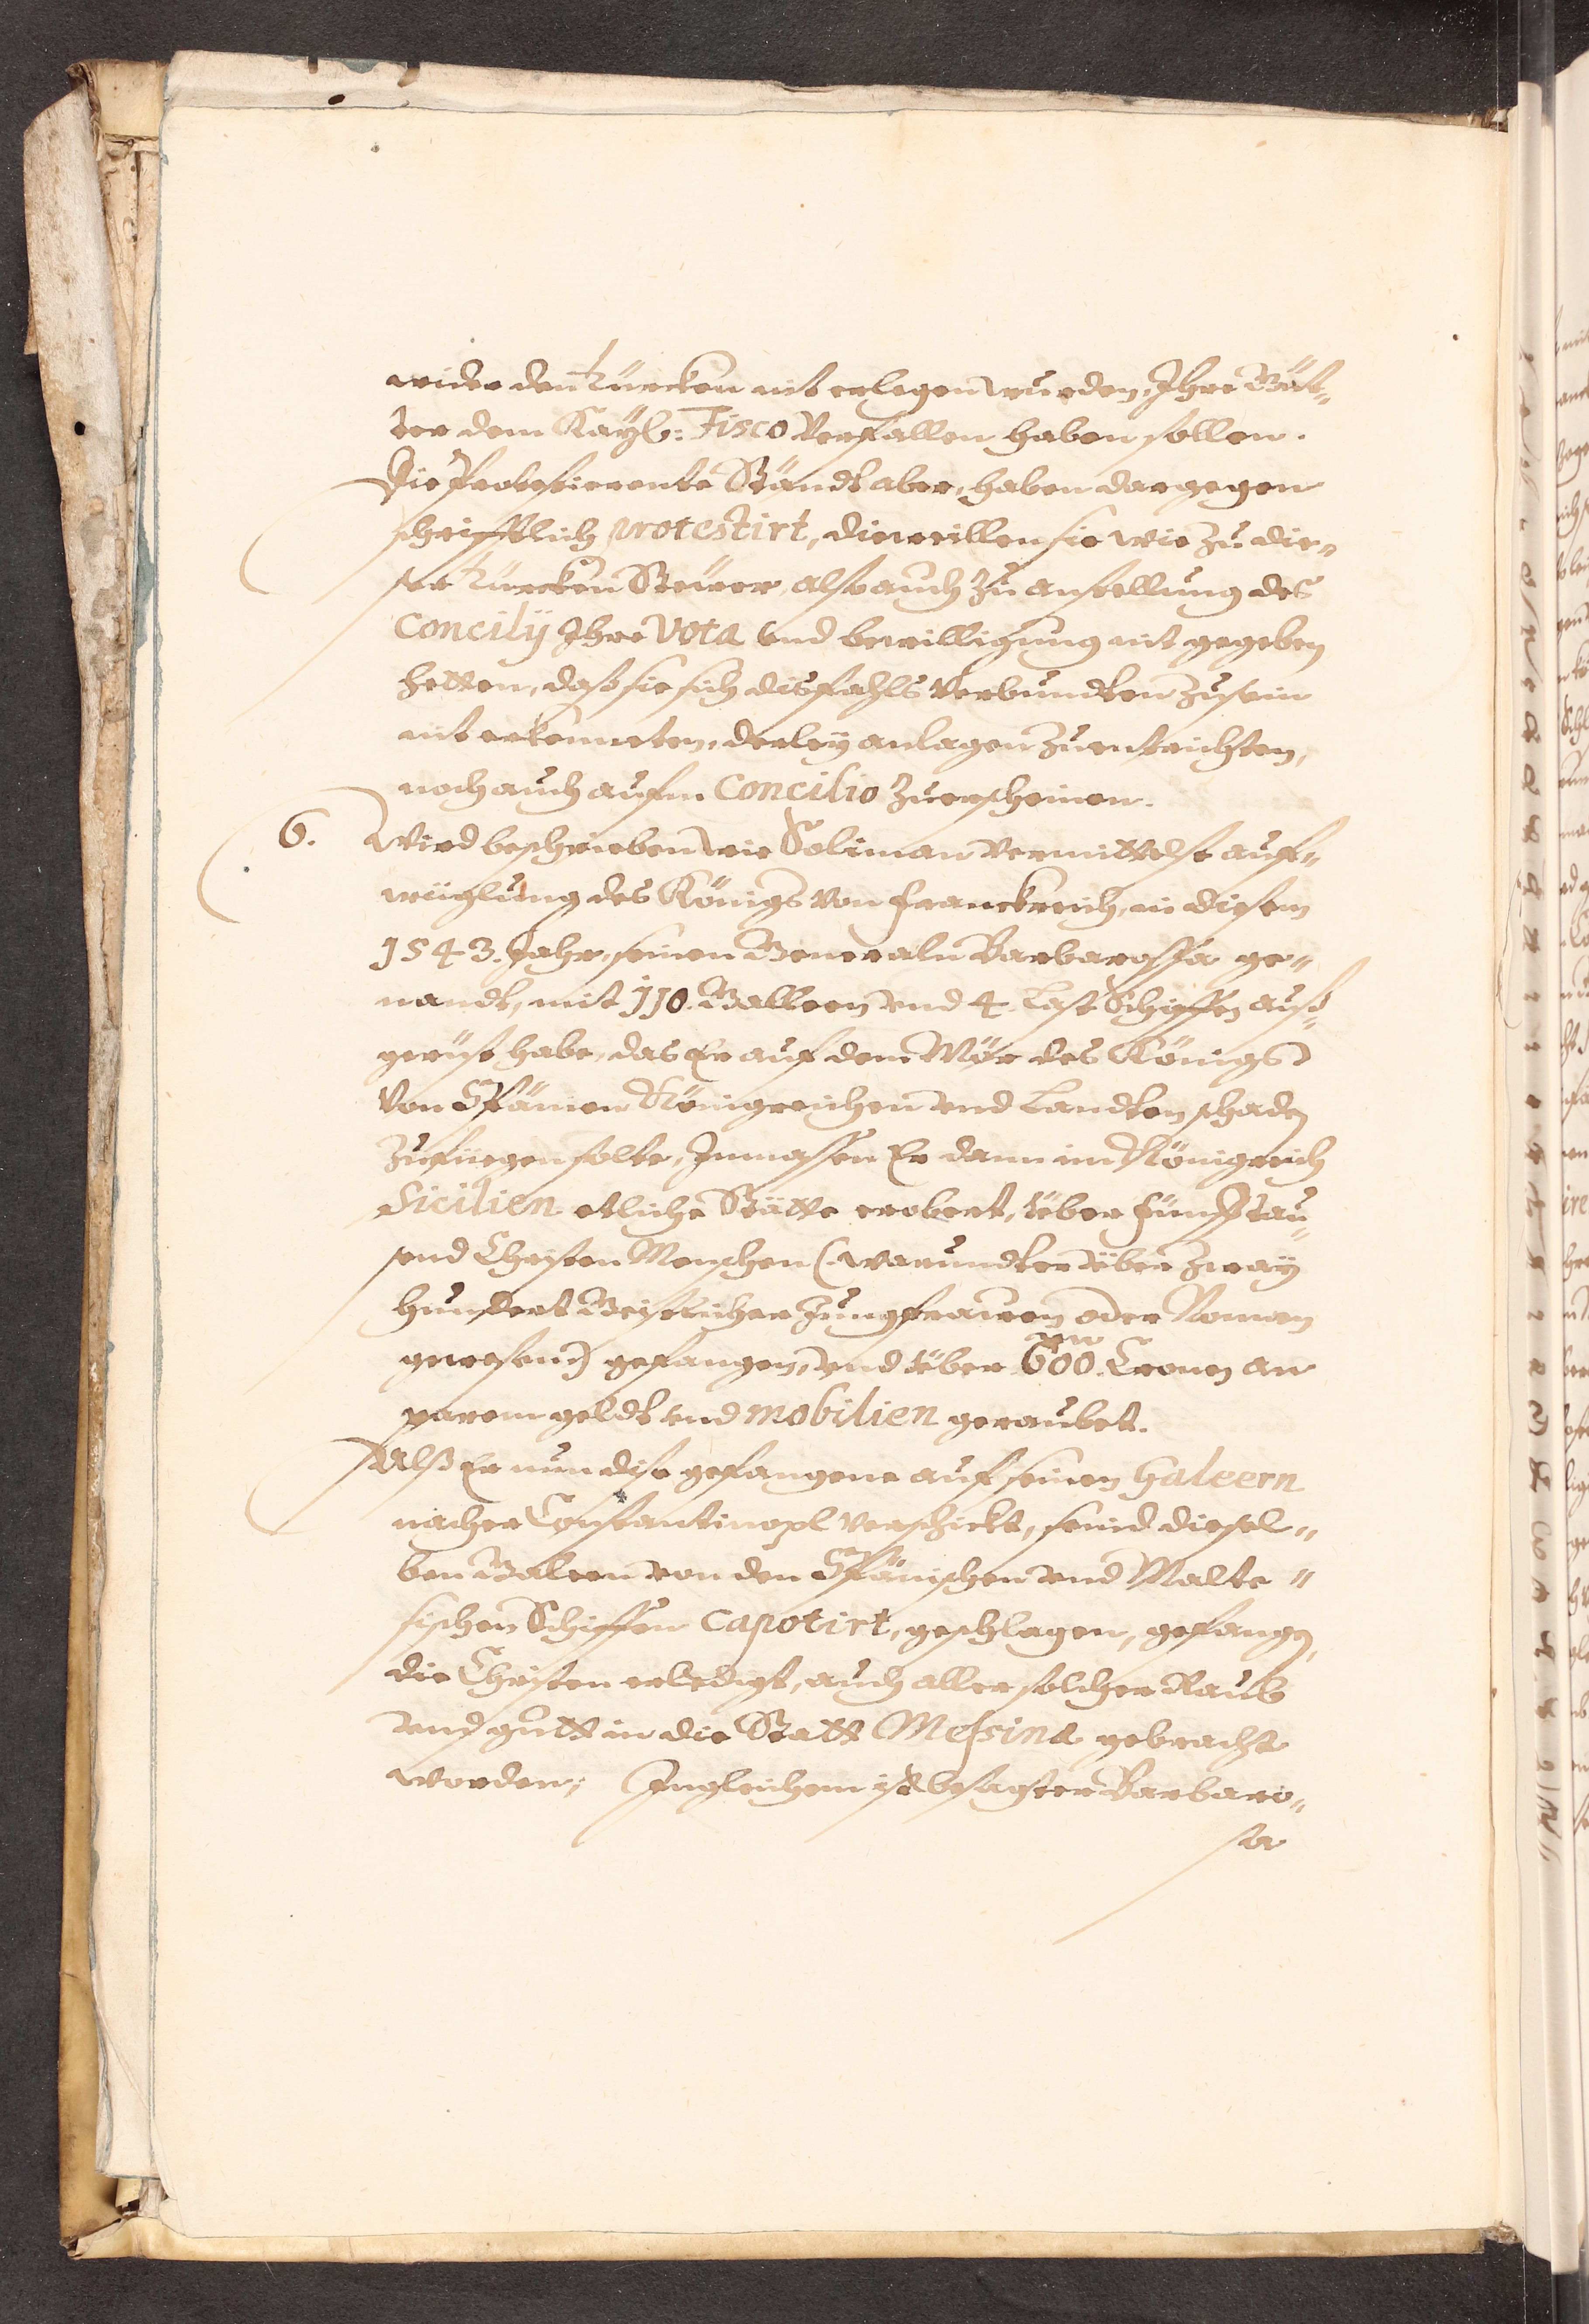 wider den Türcken nit erlegen wurden, Ihre Güt„
ter dem Kayß: Fisco Verfallen haben sollen.
Die Protestierente Ständt aber, haben dargegen
schrifftlich protestirt, dieweillen sie wie zu die„
ser Türcken Steürer, also auch zu anstellung des
Concilÿ Ihre Vota vnd bewilligung nit gegeben
hetten, daß sie sich disfahls Verbundten zu sein
nit erkenneten, derleÿ anlagen zuentrichten,
noch auch aufm Concilio zuerscheinen.
6. Wird beschrieben wie Soliman vermittelst auf„
wüglung des Königs von Franckreich, in diesem
1543. Jahr, seinen Generaln Barbarossa ge„
nandt, mit 110. Galleen vnd 4. Last Schiffen auß„
gerüst habe, das Er auf dem Mör des Königs
von Spänien Königreichen vnd Landten schaden
zufüegen solte, Inmassen Er dann im Königreich
Sicilien etliche Stätte erobert, über fünff tau„
send Christen Menschen (warundter über zway
hundert Geistlicher Jungfrawen oder Nonnen
gewesen) gefangen, vnd über 600. m Cronen an
parem geldt vnd mobilien geraubet.
Alß Er nun dise gefangene auf seinen Galeern
nacher Constantinopl verschickt, seind diesel„
ben Galeen von den Spänischen vnd Malte„
sischen Schiffen capotirt, geschlagen, gefangen,
die Christen erledigt, auch aller solcher Raub
vnd gutt in die Statt Messina gebracht
worden; Ingleichem ist besagter Barbaro„
sa